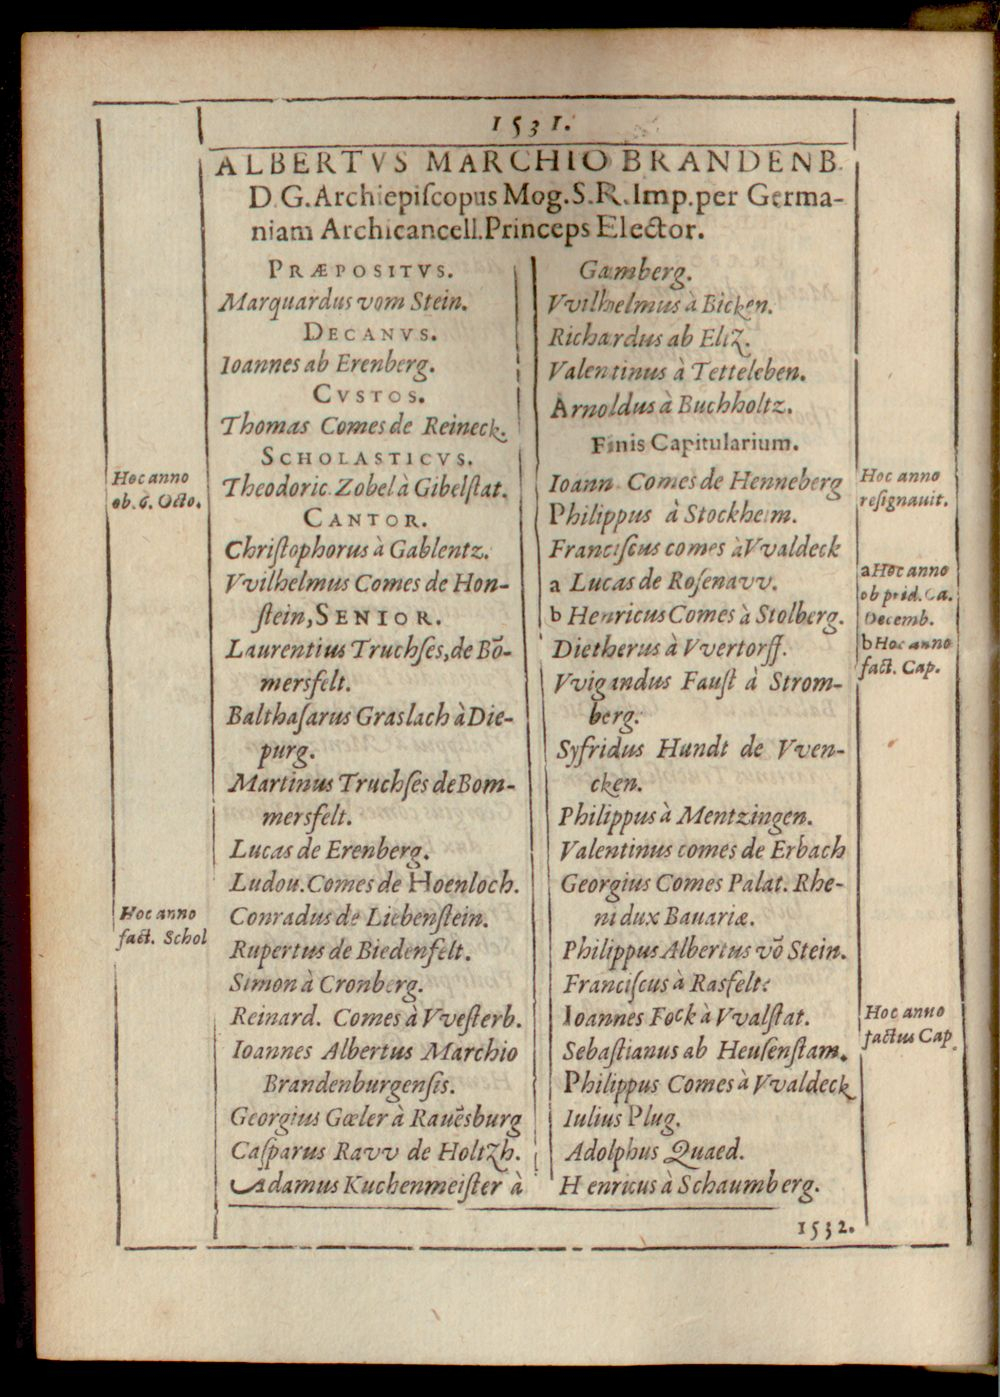 1531.
ALBERTVS MARCHIO BRANDENB.
D.G.Archiepiſcopus Mog.S.R.Imp.per Germa-
niam Archicancell.Princeps Elector.
PRÆPOSITVS.
Marquardus vom Stein.
DECANVS.
Ioannes ab Erenberg.
CVSTOS.
Thomas Comes de Reineck.
SCHOLASTICVS.
Hoc anno
ob. 6. Octo.
Theodoric. Zobel à Gibelſtat.
CANTOR.
Chriſtophorus à Gablentz.
VVilhelmus Comes de Hon-
ſtein, SENIOR.
Laurentius Truchſes, de Bō-
mersfelt.
Balthaſarus Graslach à Die-
purg.
Martinus Truchſes de Bom-
mersfelt.
Lucas de Erenberg.
Ludou. Comes de Hoenloch.
Hoc anno
fact. Schol
Conradus de Liebenſtein.
Rupertus de Biedenfelt.
Simon à Cronberg.
Reinard. Comes à VVeſterb.
Ioannes Albertus Marchio
Brandenburgenſis.
Georgius Gœler à Rauēsburg
Caſparus Ravv de Holtzh.
Adamus Kuchenmeiſter à
Gamberg.
VVilhelmus à Bicken.
Richardus ab Eltz.
Valentinus à Tetteleben.
Arnoldus à Buchholtz.
Finis Capitularium.
Ioann. Comes de Henneberg
Hoc anno
reſignauit.
Philippus à Stockheim.
Franciſcus comes à VValdeck
a Lucas de Roſenavv.
a Hoc anno
ob prid. Ca.
Decemb.
b Henricus Comes à Stolberg.
b Hoc anno
fact. Cap.
Dietherus à VVertorff.
VVigandus Fauſt à Strom-
berg.
Syfridus Hundt de VVen-
cken.
Philippus à Mentzingen.
Valentinus comes de Erbach
Georgius Comes Palat. Rhe-
ni dux Bauariæ.
Philippus Albertus vō Stein.
Franciſcus à Rasfelt:
Ioannes Fock à VValſtat.
Hoc anno
factus Cap.
Sebaſtianus ab Heuſenſtam.
Philippus Comes à VValdeck
Iulius Plug.
Adolphus Quaed.
Henricus à Schaumberg.
1532.